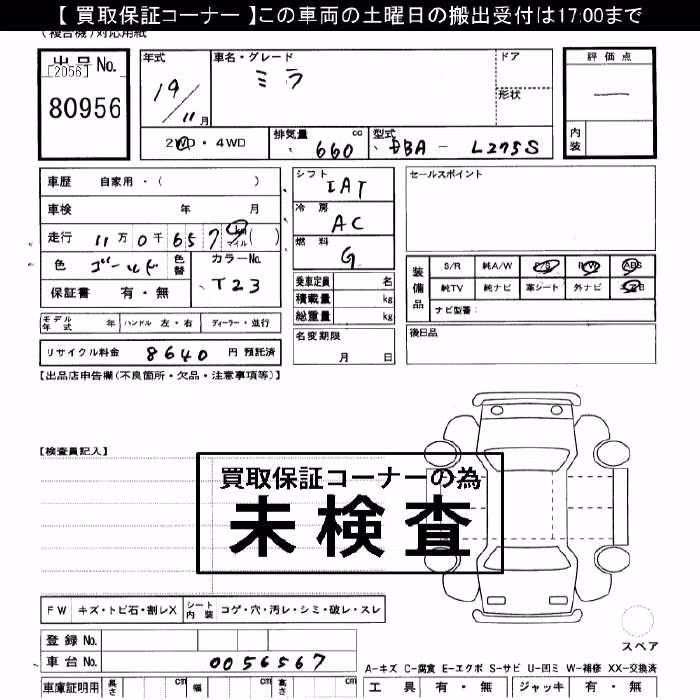 【 買取保証コーナー 】この車両の土曜日の搬出受付は17:00まで
(複合機)対応用紙
出品 No.
[2056]
80956
年式
19/11月
車名・グレード
ミラ
ドア
形状
評価点
—
内装
2WD・4WD
排気量 660 cc
型式 DBA - L275S
車歴 自家用・( )
車検 年 月
走行 11万0千657 km マイル ( )
色 ゴールド 色替
カラーNo. T23
保証書 有・無
シフト IAT
冷房 AC
燃料 G
乗車定員 名
積載量 kg
総重量 kg
セールスポイント
装備品
S/R 純A/W P/S P/W ABS
純TV 純ナビ 革シート 外ナビ
ナビ型番:
モデル年式 年 ハンドル 左・右 ディーラー・並行
リサイクル料金 8640 円 預託済
名変期限
月 日
後日品
【出品店申告欄(不良箇所・欠品・注意事項等)】
【検査員記入】
買取保証コーナーの為
未検査
FW キズ・トビ石・割レX シート内装 コゲ・穴・汚レ・シミ・破レ・スレ
スペア
登録 No.
車台 No. 0056567
A-キズ C-腐食 E-エクボ S-サビ U-凹ミ W-補修 XX-交換済
車庫証明用 長さ cm 幅 cm 高さ cm
工具 有・無 ジャッキ 有・無